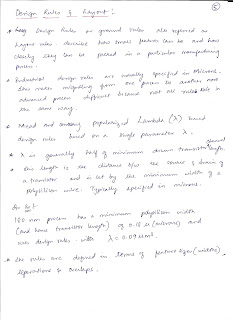 5
Design Rules & Layout:
* Design Rules or ground rules also referred as
Layout rules describe how small features can be and how
closely they can be packed in a particular manufacturing
process.
* Industrial design rules are usually specified in Microns.
this makes migrating from one process to another more
advanced process difficult because not all rules scale in
the same way.
* Mead and Conway popularized Lambda (λ) based
design rules based on a single parameter λ.
* λ is generally half of minimum drawn transistor channel length.
* this length is the distance b/w the source & drain of
a transistor and is set by the minimum width of a
polysilicon wire. Typically specified in microns.
180 nm process has a minimum polysilicon width
(and hence transistor length) of 0.18 μ (microns) and
uses design rules with λ = 0.09 μm.
* the rules are defined in terms of feature sizes (widths),
separations & overlaps.